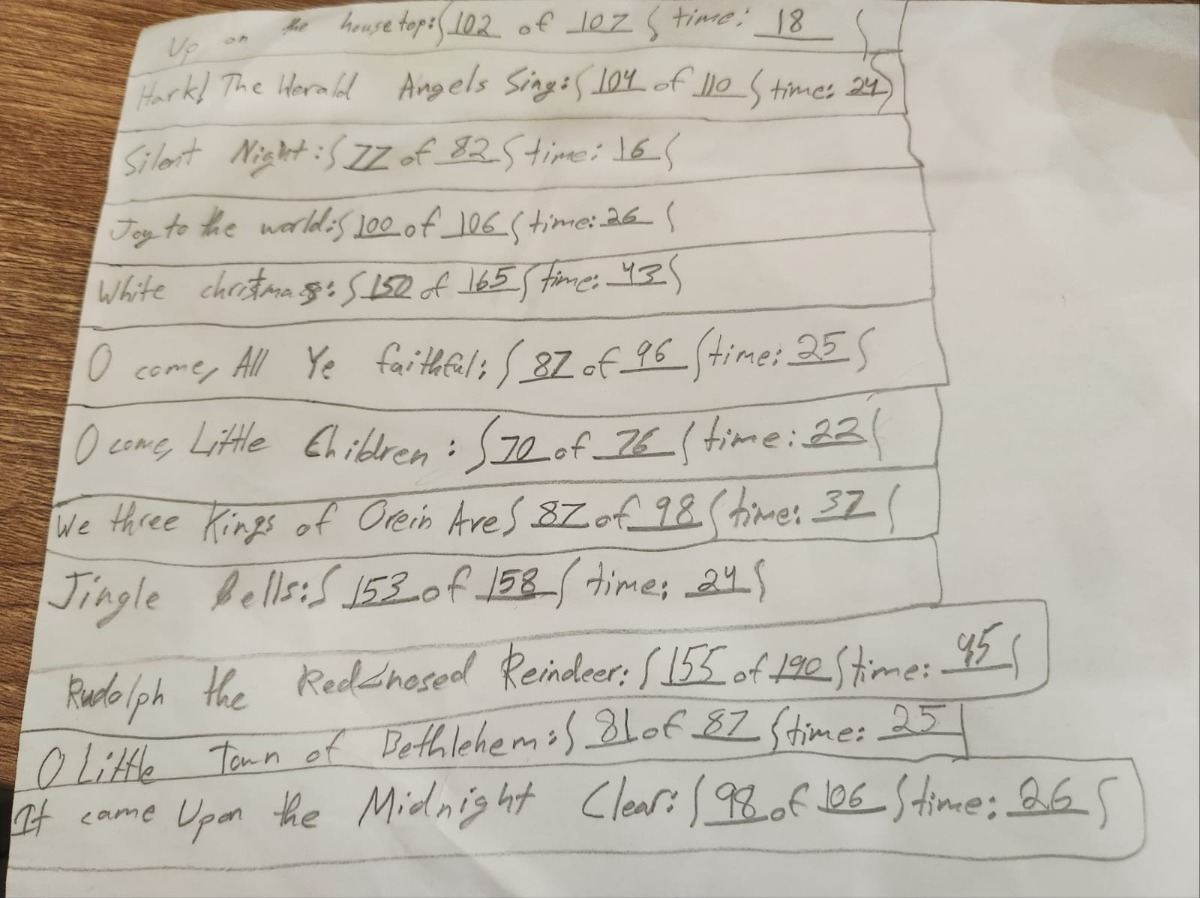 Up on the housetop:{ 102 of 107 { time: 18 {
Hark! The Herald Angels Sing:{ 104 of 110 { time: 24}
Silent Night:{ 77 of 82 { time: 16 {
Joy to the world:{ 100 of 106 { time: 26 {
White christmas:{ 150 of 165 { time: 43 {
O come, All Ye faithful:{ 87 of 96 { time: 25 {
O come, Little Children:{ 70 of 76 { time: 22 {
We three Kings of Orein Are{ 87 of 98 { time: 37 {
Jingle Bells:{ 153 of 158 { time: 24 {
Rudolph the Red-nosed Reindeer:{ 155 of 190 { time: 45 {
O Little Town of Bethlehem:{ 81 of 87 { time: 25
It came Upon the Midnight Clear:{ 98 of 106 { time: 26 {